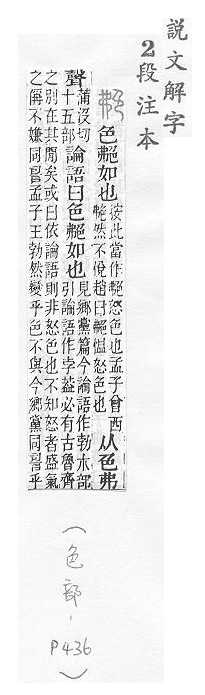 說文解字
2段注本
艴 色艴如也 按此當作艴怒色也孟子曾西
艴然不悅趙曰艴慍怒色也 从色弗
聲 蒲沒切
十五部 論語曰色艴如也 見鄉黨篇今論語作勃木部
引論語作孛蓋必有古魯齊
之別在其閒矣或曰依論語則非怒色也不知怒者盛氣
之偁不嫌同䛐孟子王勃然變乎色不與今鄉黨同䛐乎
(色部, P436)